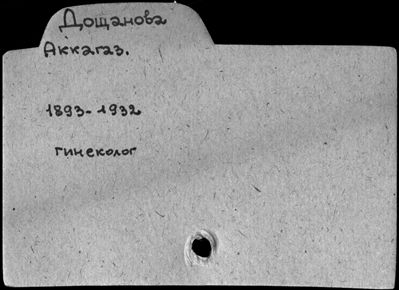 Дощанова
Аккагаз.
1893-1932
гинеколог